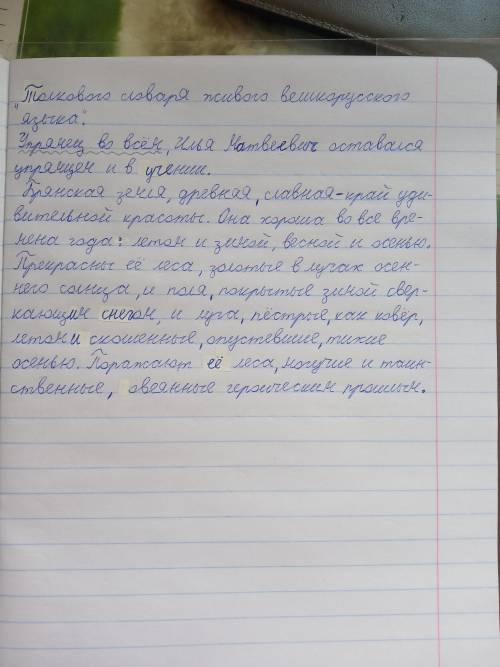 "Толкового словаря живого великорусского
языка".
Упрямец во всём, Илья Матвеевич оставался
упрямцем и в учении.
Брянская земля, древняя, славная-край уди-
вительной красоты. Она хороша во все вре-
мена года: летом и зимой, весной и осенью.
Прекрасны её леса, золотые в лучах осен-
него солнца, и поля, покрытые зимой свер-
кающим снегом, и луга, пёстрые, как ковёр,
летом и скошенные, опустевшие, тихие
осенью. Поражают её леса, могучие и таин-
ственные, овеянные героическим прошлым.